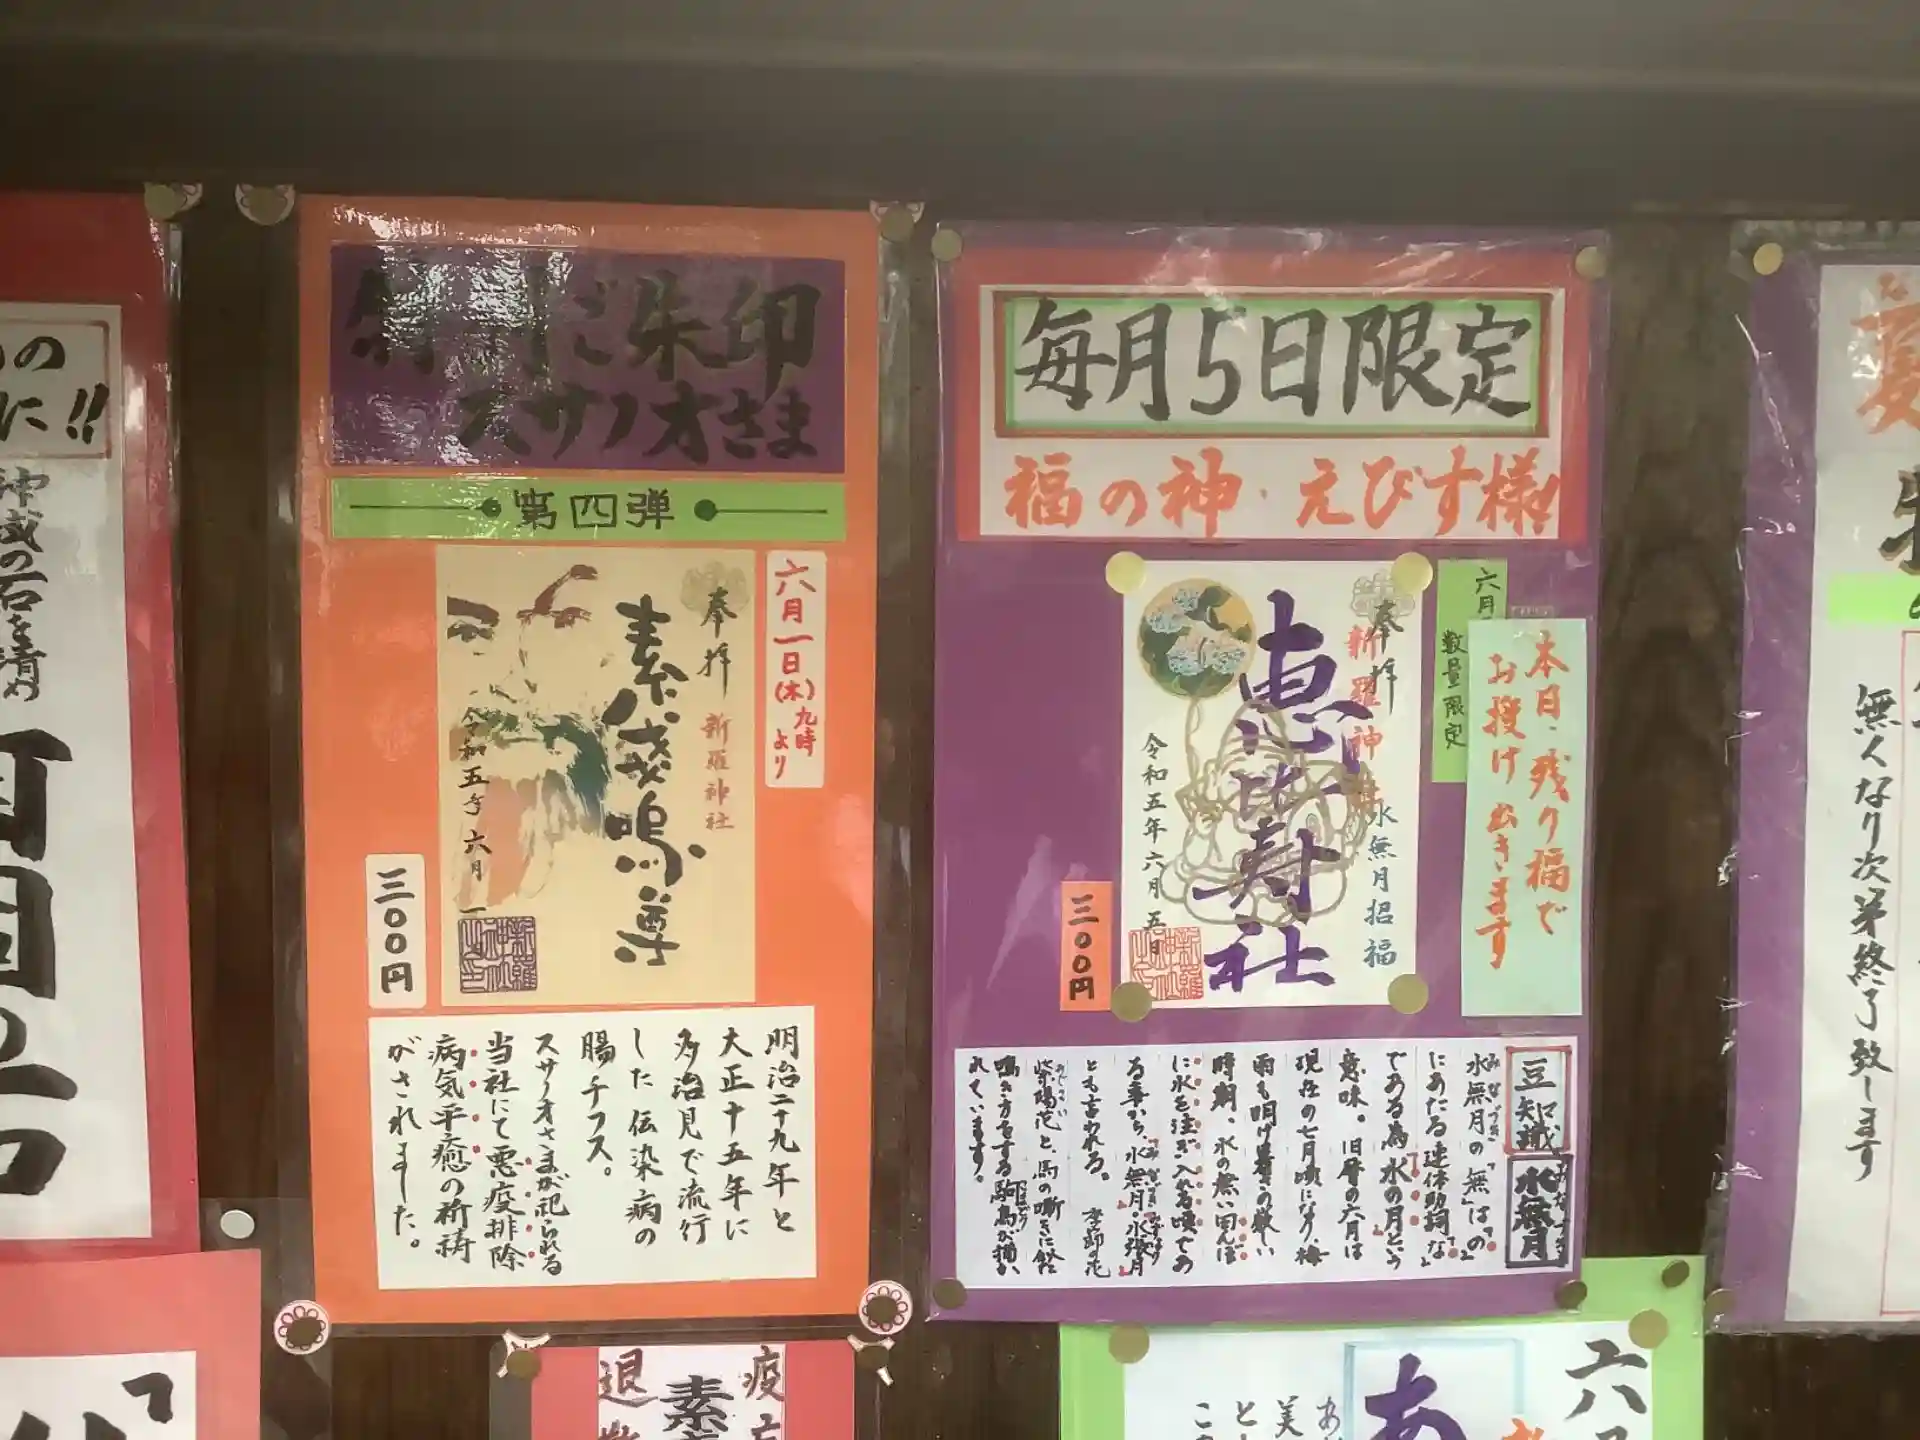 の
に!!
神域の石を清め
特別ご朱印
スサノオさま
第四弾
六月一日(木)
九時より
奉拝
新羅神社
素戔嗚尊
令和五年六月一日
三〇〇円
明治二十九年と
大正十五年に
多治見で流行
した伝染病の
腸チフス。
スサノオさまが祀られる
当社にて悪疫排除
病気平癒の祈祷
がされました。
退
素
疫
毎月5日限定
福の神・えびす様!
六月
数量限定
本日、残り福で
お授け出きます
奉拝
新羅神社
水無月招福
恵比寿社
令和五年六月五日
三〇〇円
豆知識
水無月
水無月の「無」は「の」
にあたる連体助詞「な」
である為「水の月」という
意味。旧暦の六月は
現在の七月頃になり、梅
雨も明け暑さの厳しい
時期、水の無い田んぼ
に水を注ぎ入れる頃であ
る事から、水無月・水張月
とも言われる。季節の花
紫陽花と、馬の嘶きに似た
鳴き方をする駒鳥が描か
れています。
六
あ
美
と
こ
夏
無くなり次第終了致します